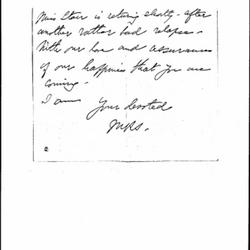 Miss Stair is retiring shortly - after
another rather bad relapse -
With our love and assurances
of our happiness that you are
coming -
I am
Your devoted
MRS.
2